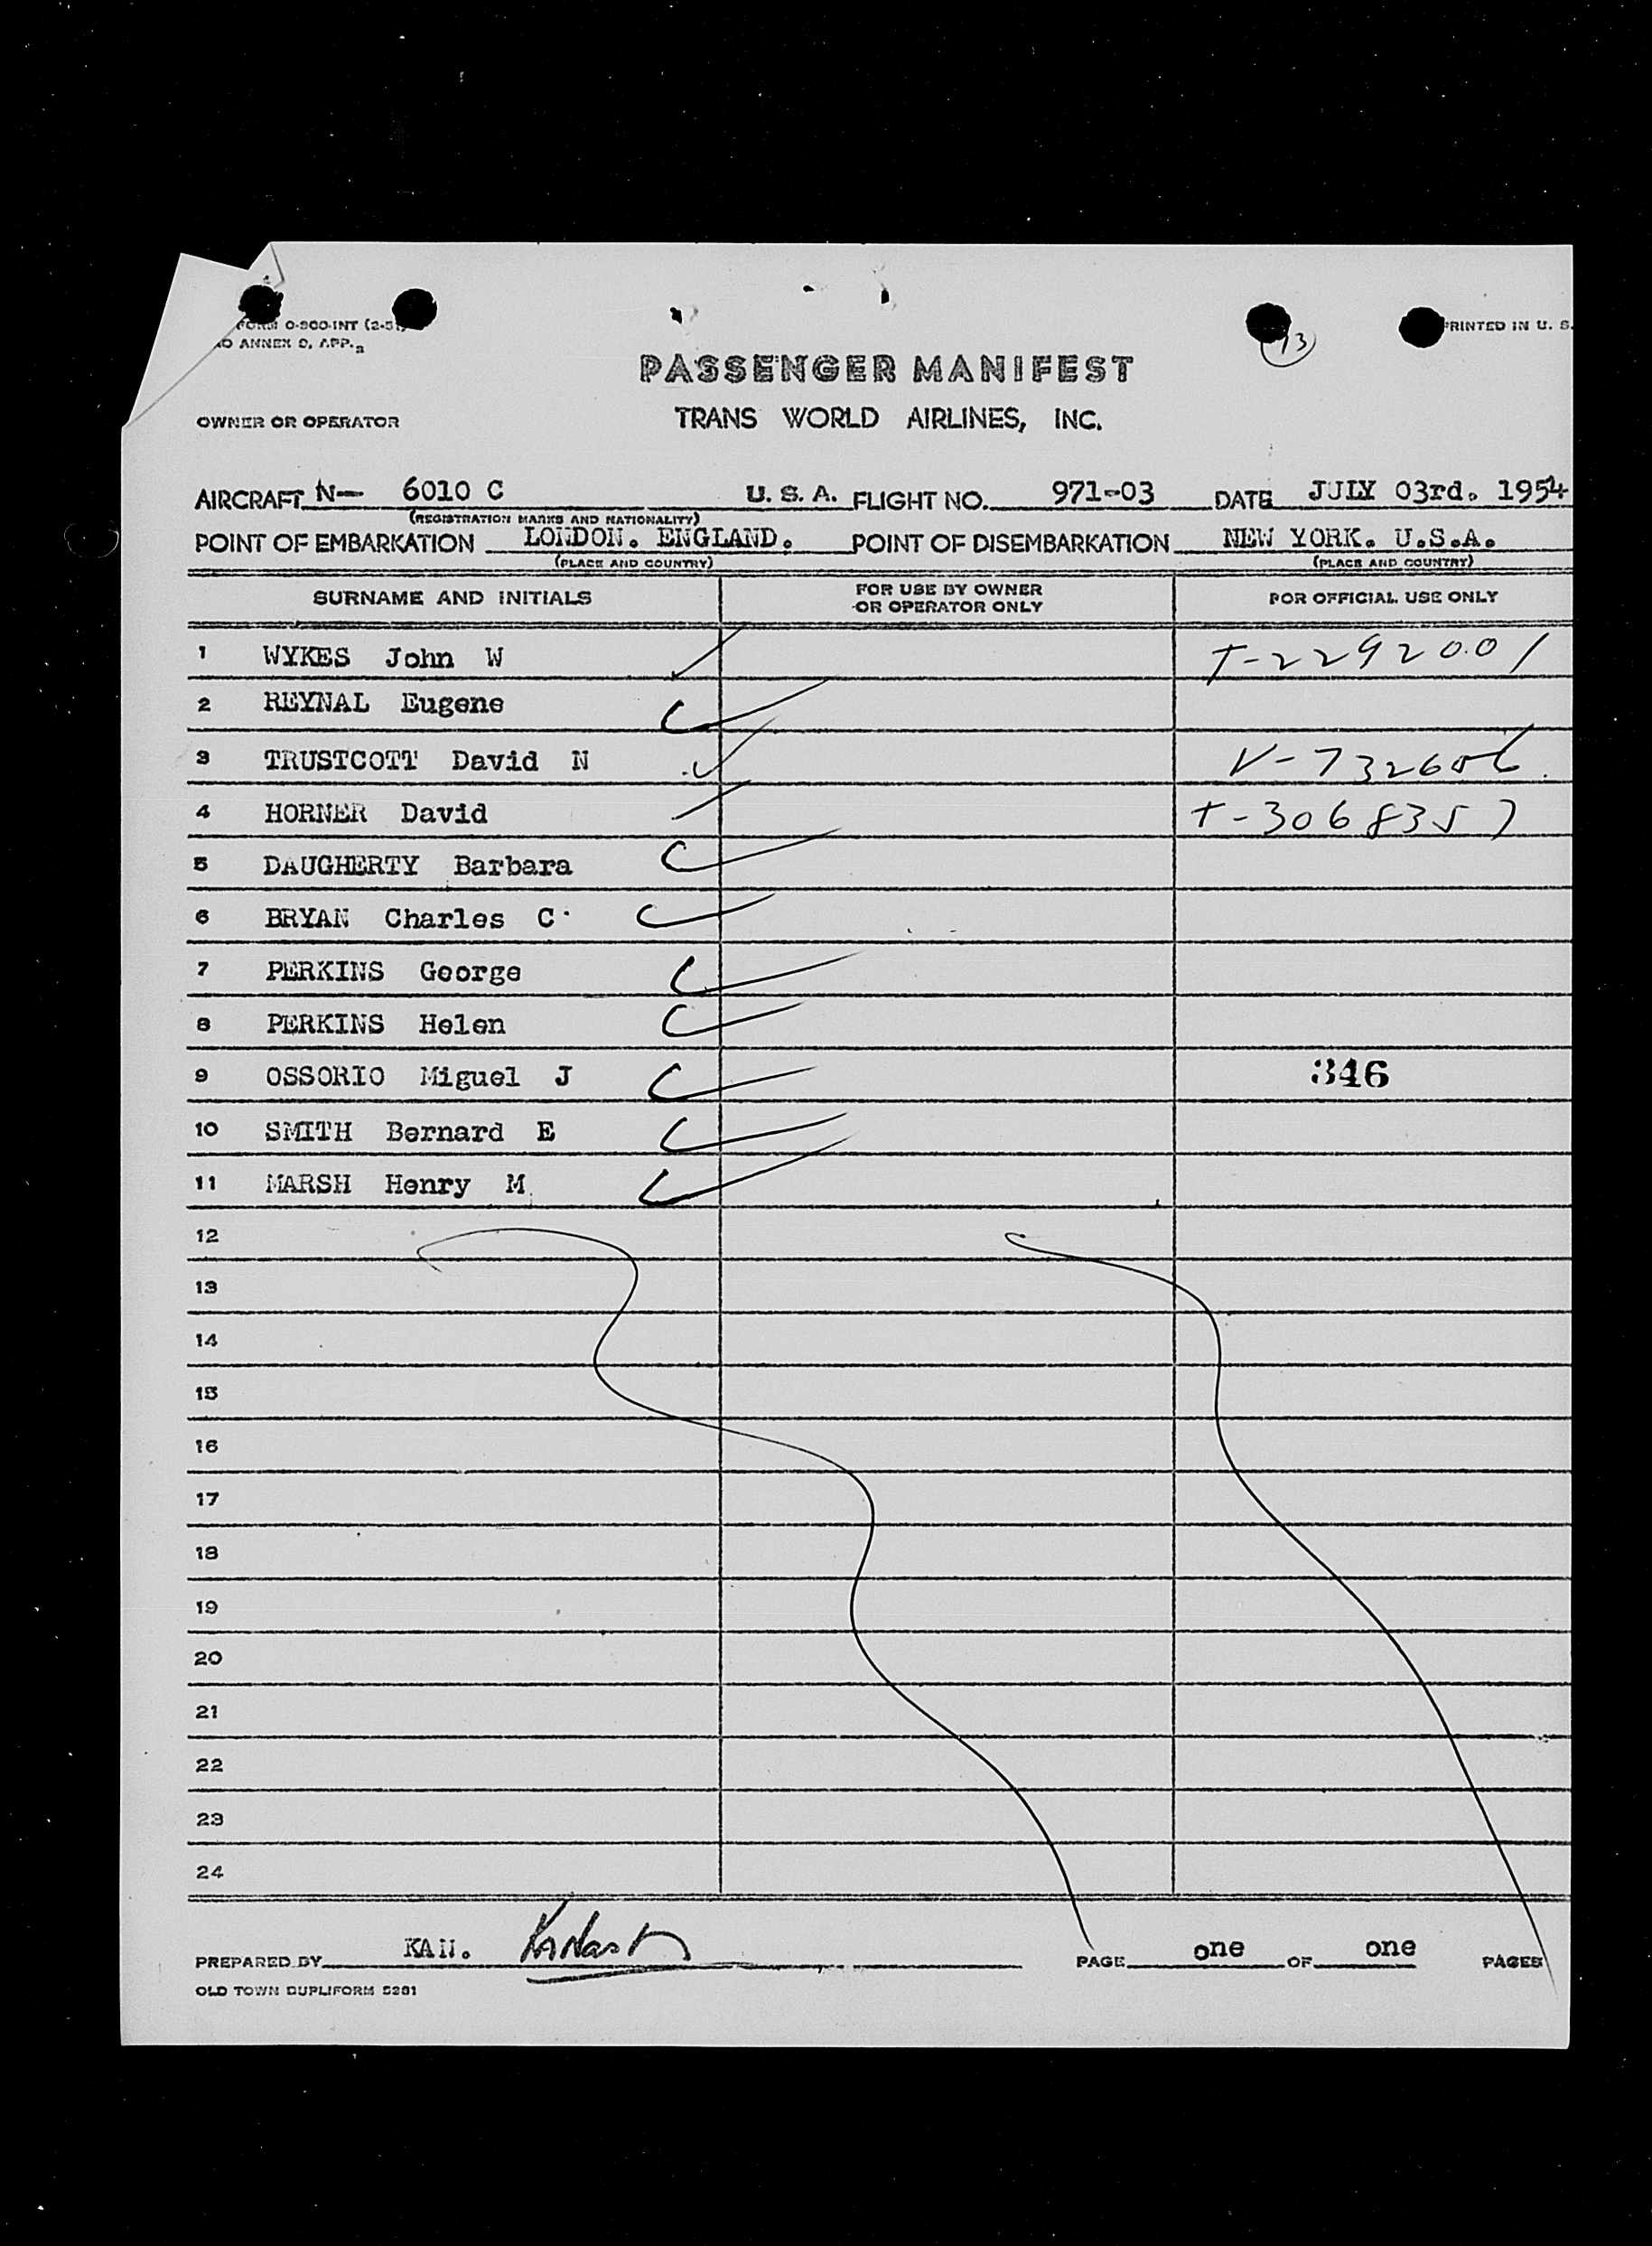 FORM O-800-INT (2-51)
ANNEX 9, APP. 2
PRINTED IN U. S.
13
PASSENGER MANIFEST
OWNER OR OPERATOR TRANS WORLD AIRLINES, INC.
AIRCRAFT N— 6010 C U. S. A. FLIGHT NO. 971-03 DATE JULY 03rd. 1954
(REGISTRATION MARKS AND NATIONALITY)
POINT OF EMBARKATION LONDON. ENGLAND. POINT OF DISEMBARKATION NEW YORK. U.S.A.
(PLACE AND COUNTRY) (PLACE AND COUNTRY)
SURNAME AND INITIALS FOR USE BY OWNER OR OPERATOR ONLY FOR OFFICIAL USE ONLY
1 WYKES John W T-2292001
2 REYNAL Eugene
3 TRUSTCOTT David N V-732606
4 HORNER David T-3068357
5 DAUGHERTY Barbara
6 BRYAN Charles C
7 PERKINS George
8 PERKINS Helen
9 OSSORIO Miguel J 346
10 SMITH Bernard E
11 MARSH Henry M
12
13
14
15
16
17
18
19
20
21
22
23
24
PREPARED BY KAN. PAGE one OF one PAGES
OLD TOWN DUPLIFORM 5281